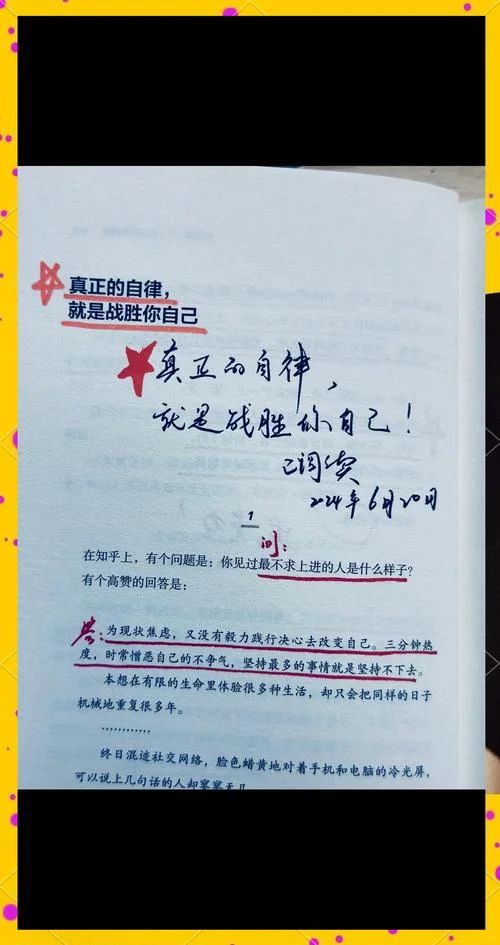 真正的自律，
就是战胜你自己
真正的自律，
就是战胜你自己！
2024年6月20日
1
问：
在知乎上，有个问题是：你见过最不求上进的人是什么样子？
有个高赞的回答是：
答：为现状焦虑，又没有毅力践行决心去改变自己。三分钟热
度，时常憎恶自己的不争气，坚持最多的事情就是坚持不下去。
本想在有限的生命里体验很多种生活，却只会把同样的日子
机械地重复很多年。
…………
终日混迹社交网络，脸色蜡黄地对着手机和电脑的冷光屏，
可以说上几句话的人却寥寥无几